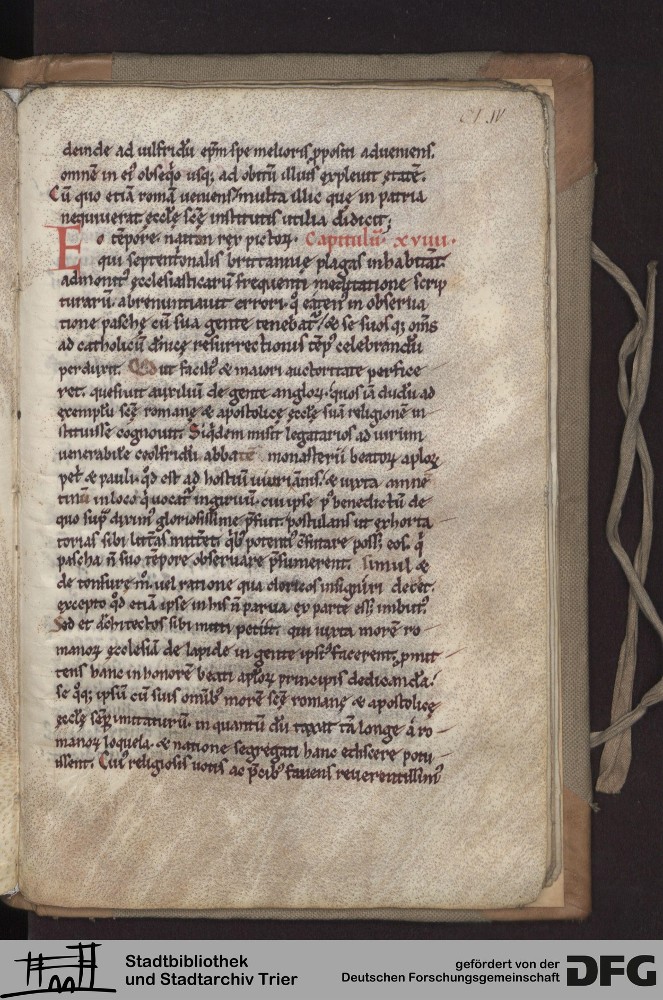 CLIV
deinde ad uilfridū ep̄m spe melioris ꝓpositi adueniens.
omnē in eiꝰ obseqͥo usqꝫ ad obitū illiuˢ expleuit ętatē.
Cū quo etiā romā ueniens multa illic quę in patria
nequiuerat ecclę̄ scę̄ institutis utilia didicit;
Eo tēpore. naiton rex pictoꝝ. Capitulū. xviiii.
qui septentˈonalis brittannię plagas inhabitāt.
admonitꝰ ęcclesiasticarū frequenti meditatione scrip
turarū. abrenuntiauit errori. qͦ eatenꝰ in obserua
tione paschę cū sua gente tenebatᷣ. & se suosqꝫ om̄s
ad catholicū dn̄icę resurrectionis tēpꝰ celebrandū
perduxit. Quod ut faciliꝰ & maiori auctoritate perfice
ret. quesiuit auxiliū de gente angloꝝ. quos iā dudū ad
exemplū scę̄ romanę & apostolicę ęcclę̄ suā religionē in
stituisse cognouit. Siqͥdem misit legatarios ad uirum
uenerabilē ceolfridū abbatē monasterii beatoꝝ aploꝝ
pet͛ & pauli. qd̄ est ad hostiū uiuri amnis. & iuxta amnē
tinū in loco qͥ uocatᷣ ingiruū. cui ipse pˢ benedictū de
quo supᷓ diximꝰ gloriosissime p̄fuit. postulans ut exhorta
torias sibi litt̄as mitt̄et. qͥbꝰ potentiꝰ c̄futare poss; eos. qͥ
pascha n̄ suo tēpore obseruare p̄sumerent. simul &
de tonsurę mͦ. uel ratione qua clericos insigniri decet.
excepto qd̄ etiā ipse in his n̄ parua ex parte ess; imbutꝰ.
Sed et architectos sibi mitti petiit. qui iuxta morē ro
manoꝝ ęcclesiā de lapide in gente ipsiꝰ facerent. ꝓmit
tens hanc in honorē beati aploꝝ principis dedicandā.
se qͦqꝫ ipsū cū suis omībꝰ morē scę̄ romanę & apostolicę
ęcclę̄ semꝑ imitaturū. in quantū dū taxat tā longe a ro
manoꝝ loquela. & natione segregati hanc ediscere potu
issent. Cuiꝰ religiosis uotis ac p̄cibꝰ fauens reuerentissimꝰ
Stadtbibliothek
und Stadtarchiv Trier
gefördert von der
Deutschen Forschungsgemeinschaft
DFG